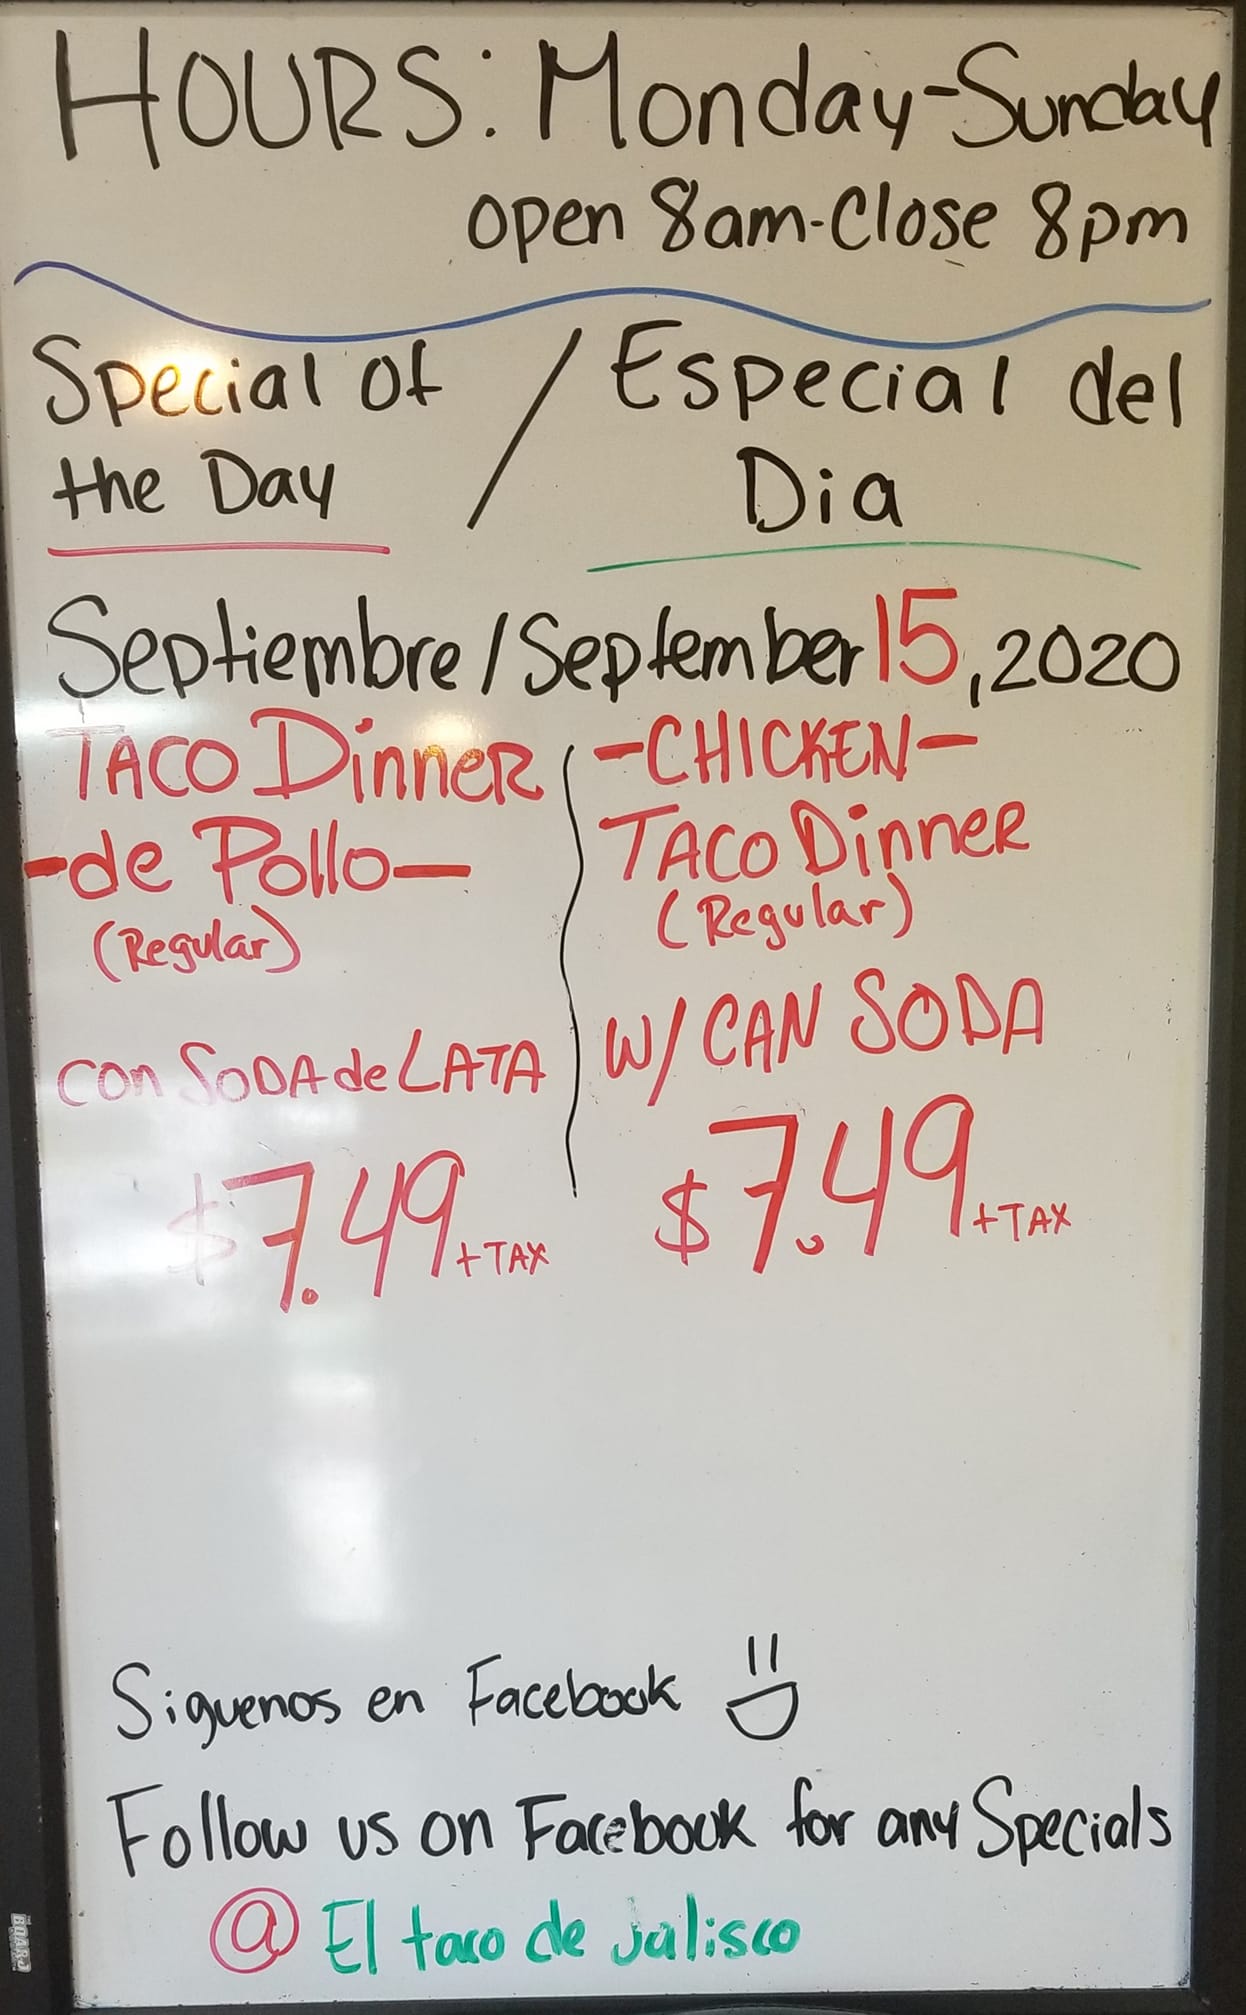 HOURS: Monday-Sunday
open 8am-Close 8pm
Special of the Day / Especial del Dia
Septiembre/September 15, 2020
TACO Dinner
-de Pollo-
(Regular)
con SODA de LATA
$7.49 +TAX
-CHICKEN-
TACO Dinner
(Regular)
W/ CAN SODA
$7.49 +TAX
Siguenos en Facebook
Follow us on Facebook for any Specials
@ El taco de jalisco